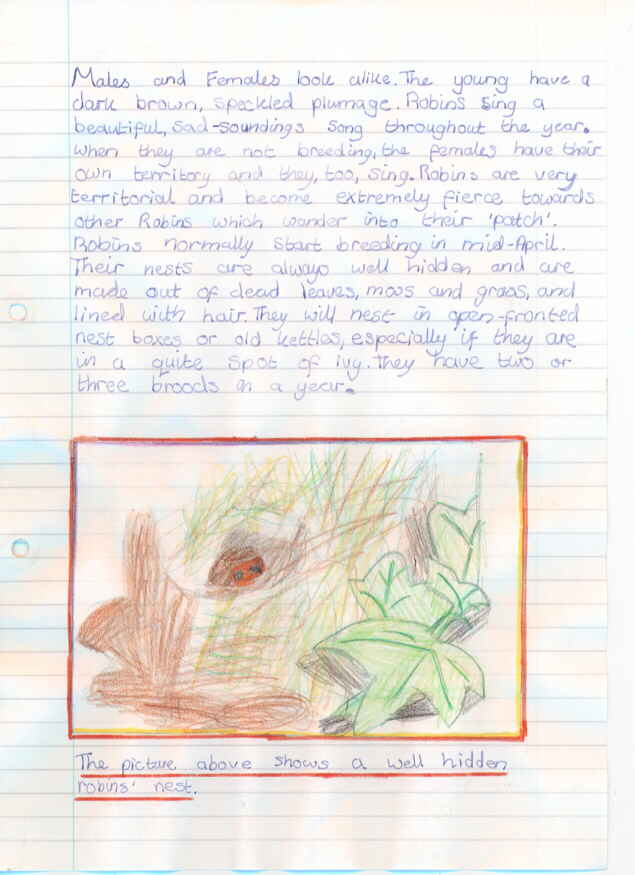 Males and Females look alike. The young have a
dark brown, speckled plumage. Robins sing a
beautiful, sad-soundings song throughout the year.
when they are not breeding, the females have their
own territory and they, too, sing. Robins are very
territorial and become extremely fierce towards
other Robins which wander into their 'patch'.
Robins normally start breeding in mid-April.
Their nests are always well hidden and are
made out of dead leaves, moss and grass, and
lined with hair. They will nest in open-fronted
nest boxes or old kettles, especially if they are
in a quite spot of ivy. They have two or
three broods in a year.
The picture above shows a well hidden
robins' nest.